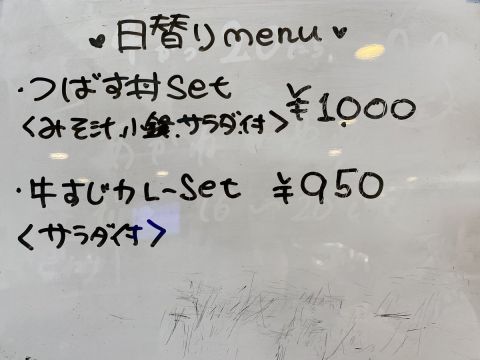 ♥日替りmenu♥
・つばす丼Set ¥1000
<みそ汁.小鉢.サラダ.付>
・牛すじカレーSet ¥950
<サラダ付>